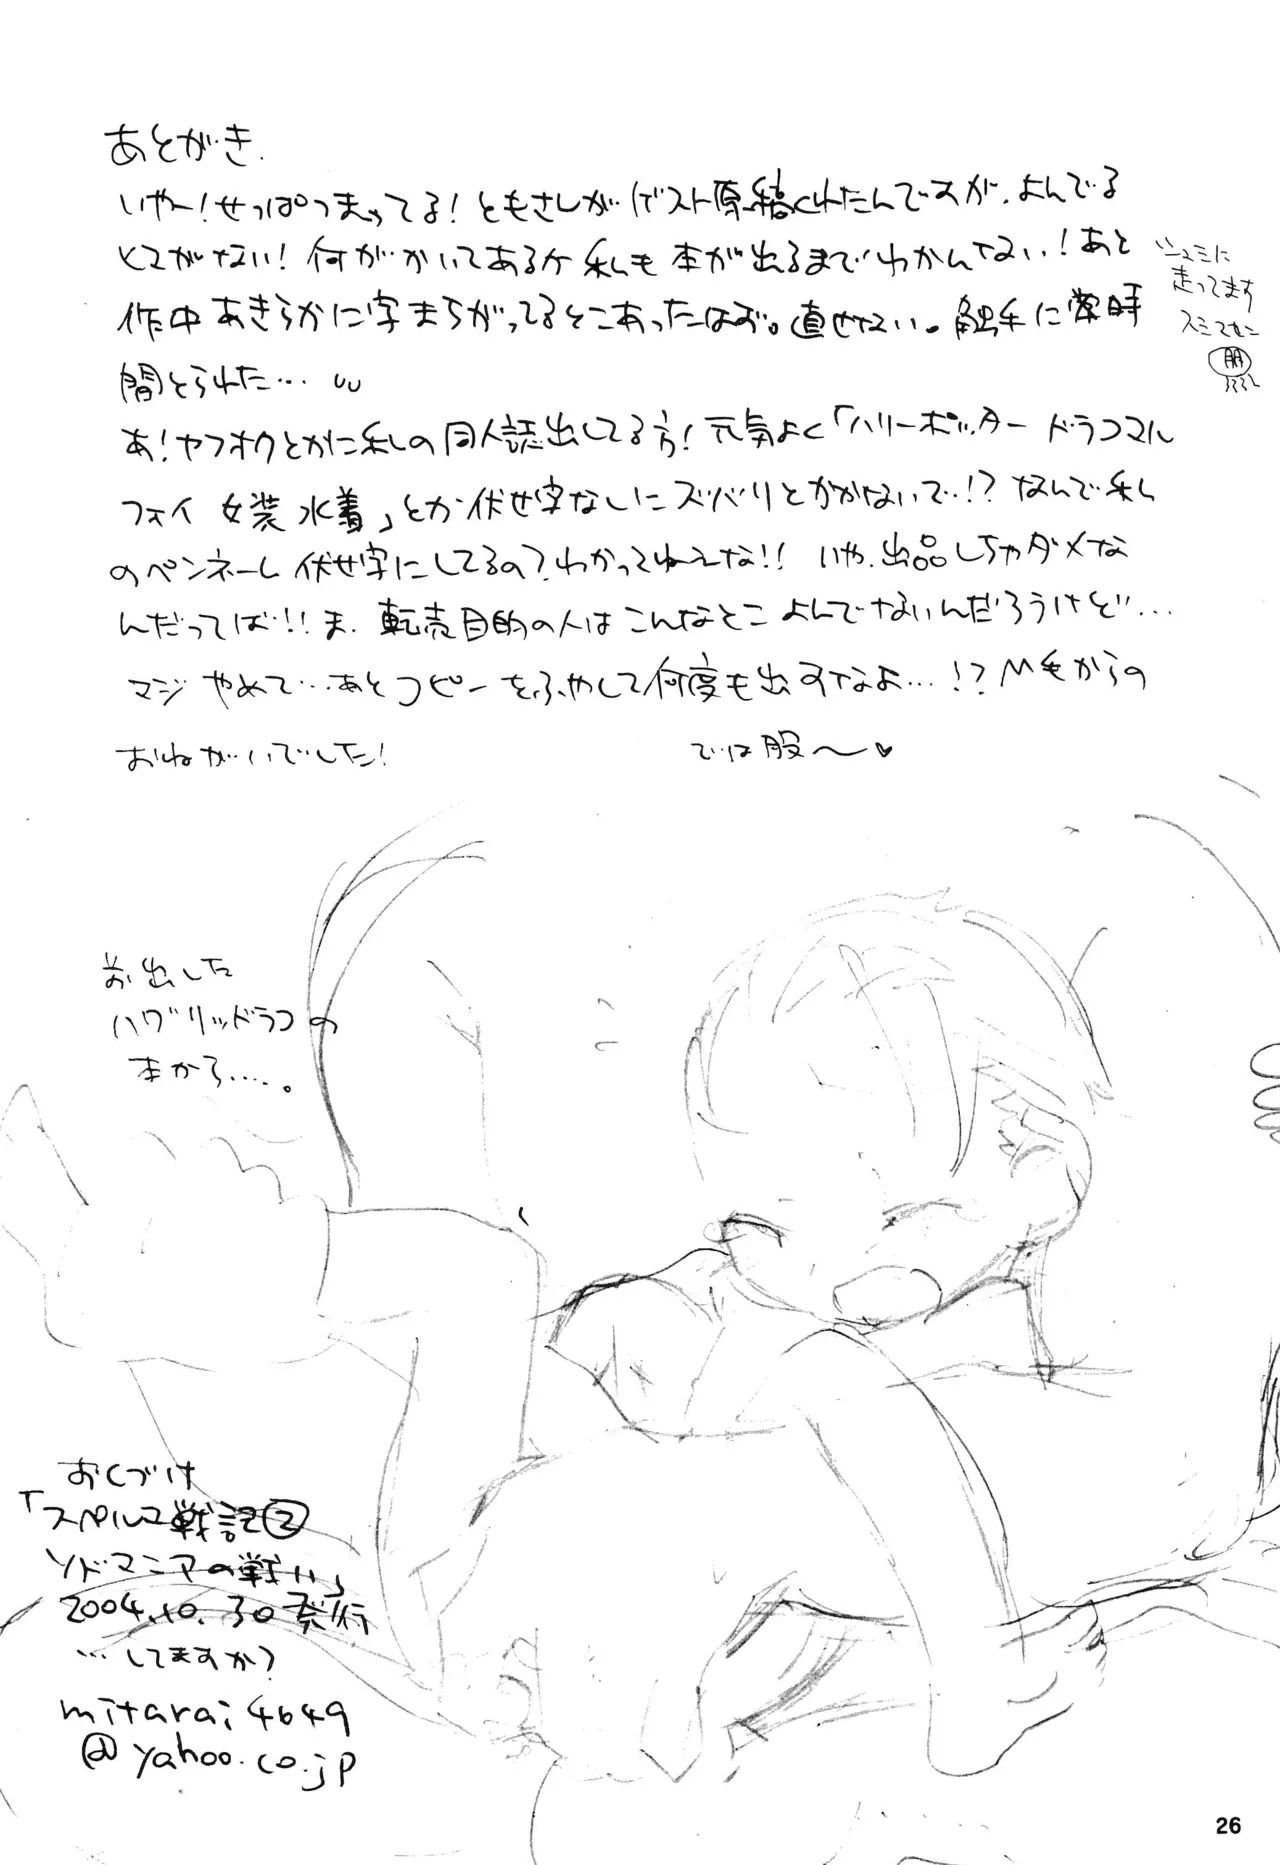 あとがき.
いやー!せっぱつまってる!ともさしがゲスト原稿くれたんですが、よんでる
ヒマがない!何がかいてあるか私も本が出るまでわかんない!あと
作中あきらかに字まちがってるとこあったはず。直せない。触手に常時
間とられた…
あ!ヤフオクとかに私の同人誌出してる方!元気よく「ハリーポッター ドラコマル
フォイ 女装 水着」とか伏せ字なしにズバリとかかないで!?なんで私
のペンネーム伏せ字にしてるの?わかってねえな!!いや、出品しちゃダメな
んだってば!!ま、転売目的の人はこんなとこよんでないんだろうけど…
マジやめて…あとコピーをふやして何度も出すなよ…!?M毛からの
おねがいでした!
では股〜♥
シュミに
走ってます
スミマセン
朋
お出した
ハグリッドラコの
本から....。
おくづけ
「スペルマ戦記②
ソドマニアの戦い」
2004.10.30発行
…してますか?
mitarai4649
@yahoo.co.jp
26